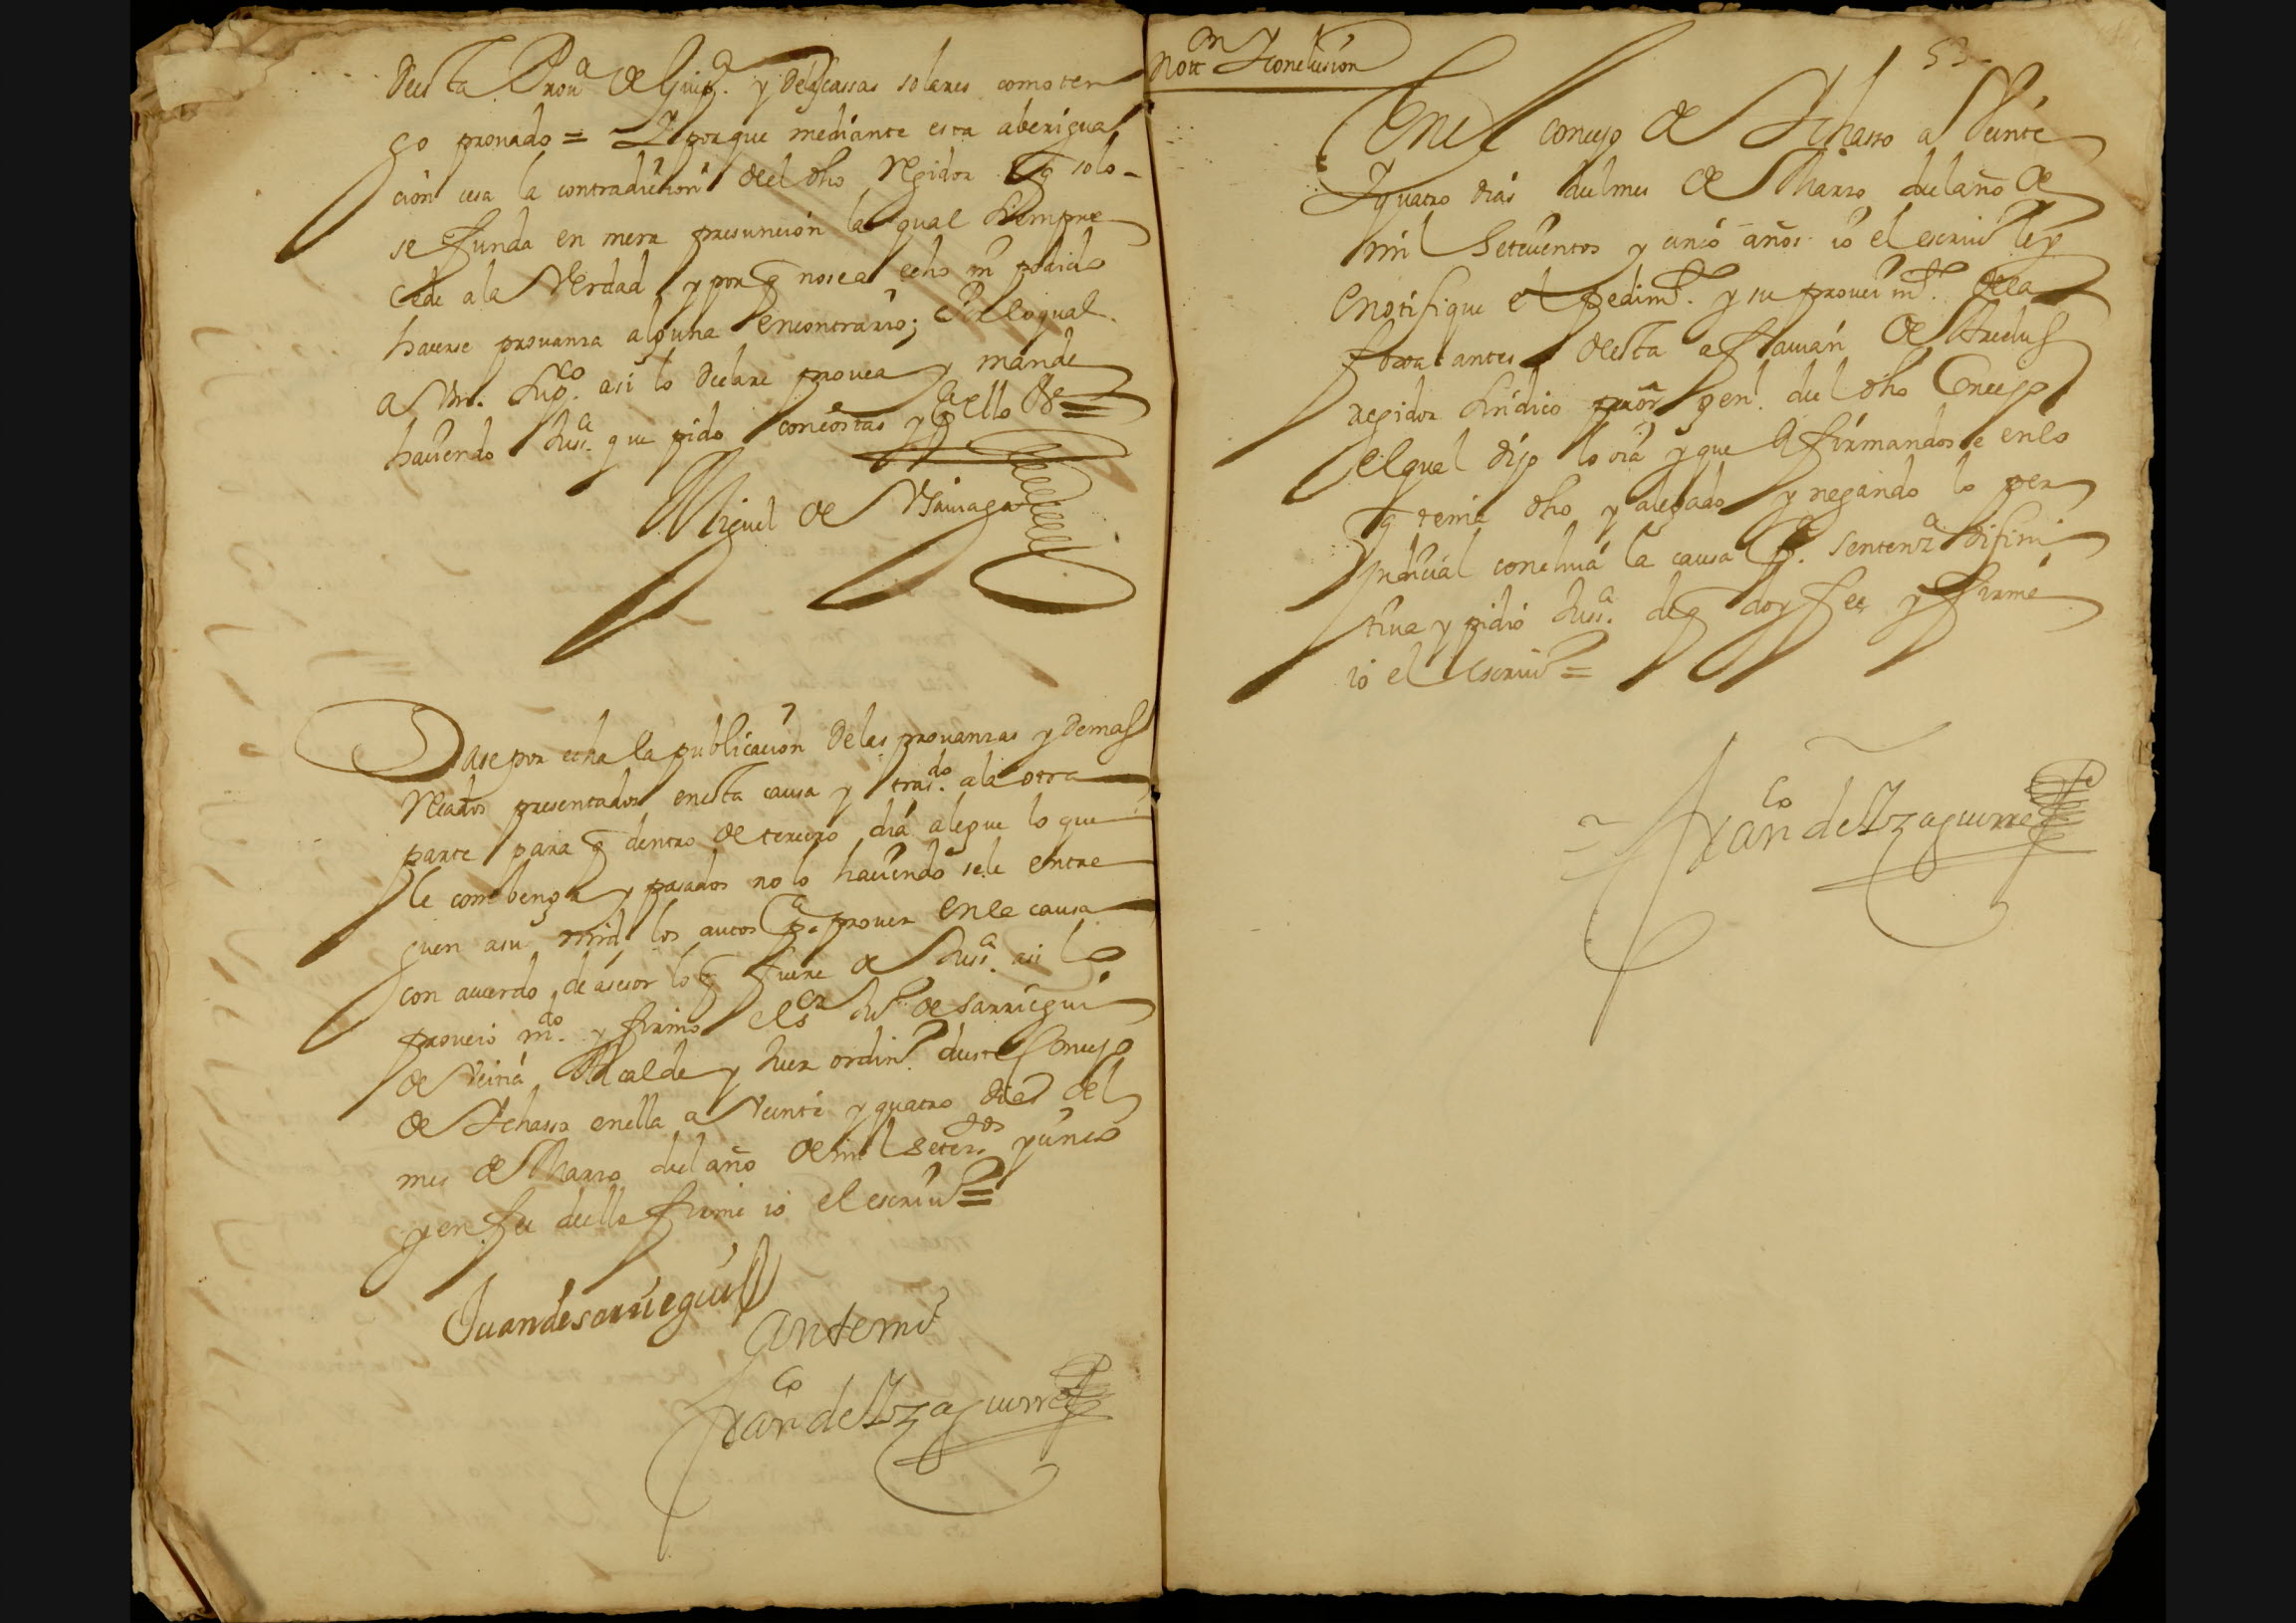 desta Prou^a de Guip^a. y delas cassas solares como ten
go prouado = Y porque mediante esta aberigua
cion cesa la contradicion deel dho Regidor q solo
se funda en mera presuncion la qual siempre
cede ala Verdad y por q nosea echo ni podido
hauerse prouanza alguna encontrario; Por loqual
a Vm. sup^co. asi lo declare prouea y mande
haciendo Jus^a. que pido con costas y p^a ello &^a =
Miguel de
Dase por echa la publicacion delas prouanzas y demas
Recados presentados enesta causa y tras^do. ala otra
parte para q dentro de tercero dia alegue lo que
le combenga y pasados no lo haciendo sele entre
guen asu mrd los autos p^a. prouer enla causa
con acuerdo de asesor lo q fuere de Jus^a. asi lo
proueio m^do. y firmo el s^or Ju^o de Sarriegui
de Alcalde y Juez ordin^o deste Concejo
de Ichasso enella a Veinte y quatro dias del
mes de Marzo del año de mil setez^tos y cinco
y en fee dello firme io el escriu^o =
Juan de sarriegui
Ante mi
Fran^co de Yzaguirre
Nott^on Y conclusion
53
En el concejo de Ichasso a Veinte
Y quatro dias del mes de Marzo del año de
mil Setecientos y cinco años io el escriu^o ley
E notifique el pedim^to. y su proueim^to. dela
foxa antes desta a de
Regidor sindico pro^or gen^l. del dho Concejo
el qual dijo lo oia y que Afirmandose enlo
q tenia dho y alegado y negando lo per
Judicial concluia la causa p^a. sentenz^a difini
tiua y pidio Jus^a. de q doy fee y firme
io el escriu^o =
Fran^co de Yzaguirre